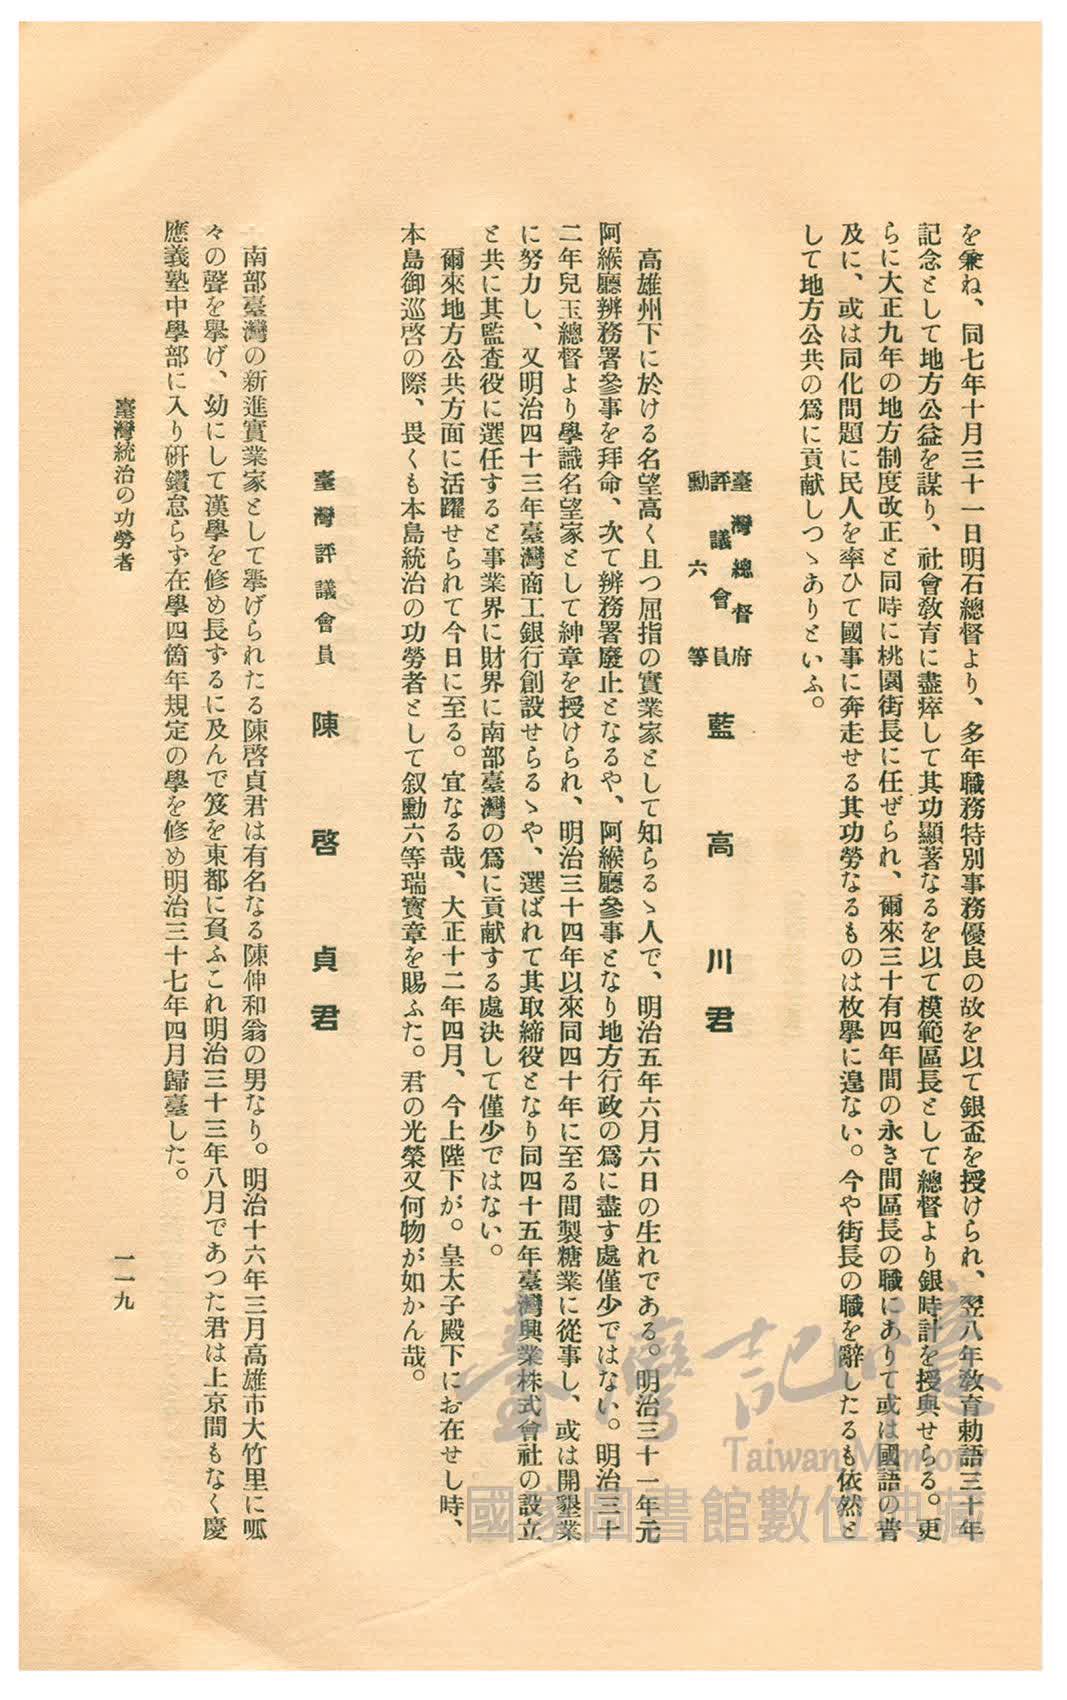 を兼ね、同七年十月三十一日明石總督より、多年職務特別事務優良の故を以て銀盃を授けられ、翌八年教育勅語三十年
記念として地方公益を謀り、社會教育に盡瘁して其功顯著なるを以て模範區長として總督より銀時計を授與せらる。更
らに大正九年の地方制度改正と同時に桃園街長に任ぜられ、爾來三十有四年間の永き間區長の職にありて或は國語の普
及に、或は同化問題に民人を率ひて國事に奔走せる其功勞なるものは枚擧に遑ない。今や街長の職を辭したるも依然と
して地方公共の爲に貢献しつゝありといふ。
臺灣總督府
評議會員
勳六等
藍高川君
高雄州下に於ける名望高く且つ屈指の實業家として知らるゝ人で、明治五年六月六日の生れである。明治三十一年元
阿緱廳辨務署參事を拜命、次て辨務署廢止となるや、阿緱廳參事となり地方行政の爲に盡す處僅少ではない。明治三十
二年兒玉總督より學識名望家として紳章を授けられ、明治三十四年以來同四十年に至る間製糖業に從事し、或は開墾業
に努力し、又明治四十三年臺灣商工銀行創設せらるゝや、選ばれて其取締役となり同四十五年臺灣興業株式會社の設立
と共に其監査役に選任すると事業界に財界に南部臺灣の爲に貢献する處決して僅少ではない。
爾來地方公共方面に活躍せられて今日に至る。宜なる哉、大正十二年四月、今上陛下が。皇太子殿下にお在せし時、
本島御巡啓の際、畏くも本島統治の功勞者として叙勳六等瑞寶章を賜ふた。君の光榮又何物が如かん哉。
臺灣評議會員 陳啓貞君
南部臺灣の新進實業家として擧げられたる陳啓貞君は有名なる陳仲和翁の男なり。明治十六年三月高雄市大竹里に呱
々の聲を擧げ、幼にして漢學を修め長ずるに及んで笈を東都に負ふこれ明治三十三年八月であつた君は上京間もなく慶
應義塾中學部に入り研鑽怠らず在學四箇年規定の學を修め明治三十七年四月歸臺した。
臺灣統治の功勞者
一一九
臺灣記憶
Taiwan Memory
國家圖書館數位典藏